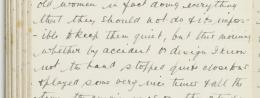 old women in fact doing everything
that they should not do & it's impos-
-ible to keep them quiet, but this morning
whether by accident or design I know
not the band stopped quite close to us
& played some very nice tunes & all the